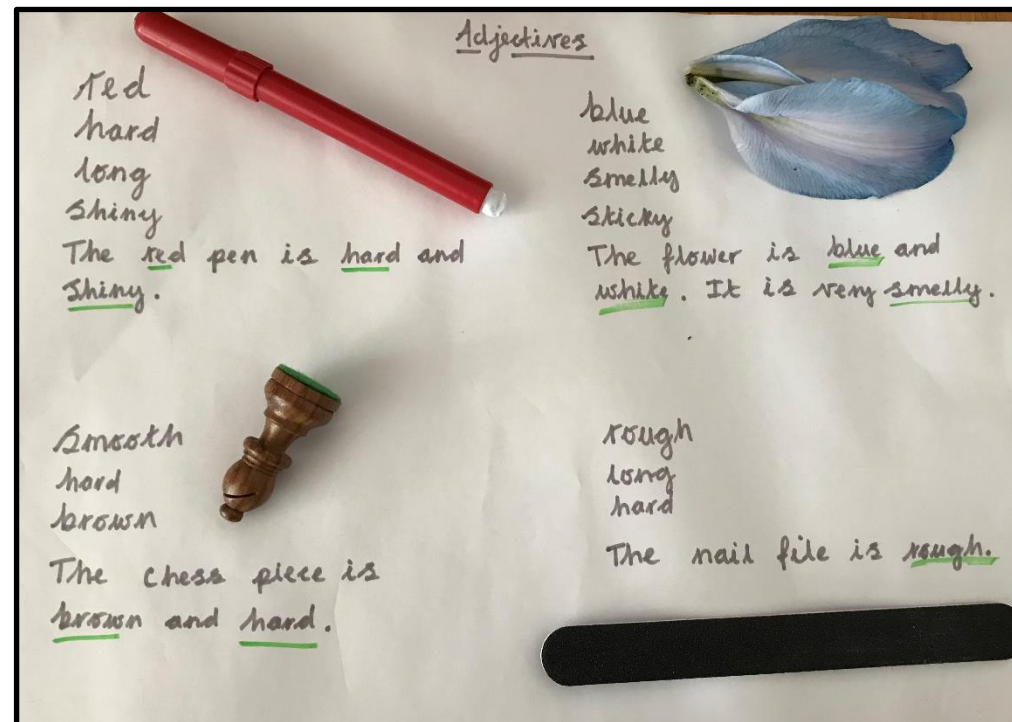 Adjectives
red
hard
long
shiny
The red pen is hard and
shiny.
blue
white
smelly
sticky
The flower is blue and
white. It is very smelly.
smooth
hard
brown
The chess piece is
brown and hard.
rough
long
hard
The nail file is rough.